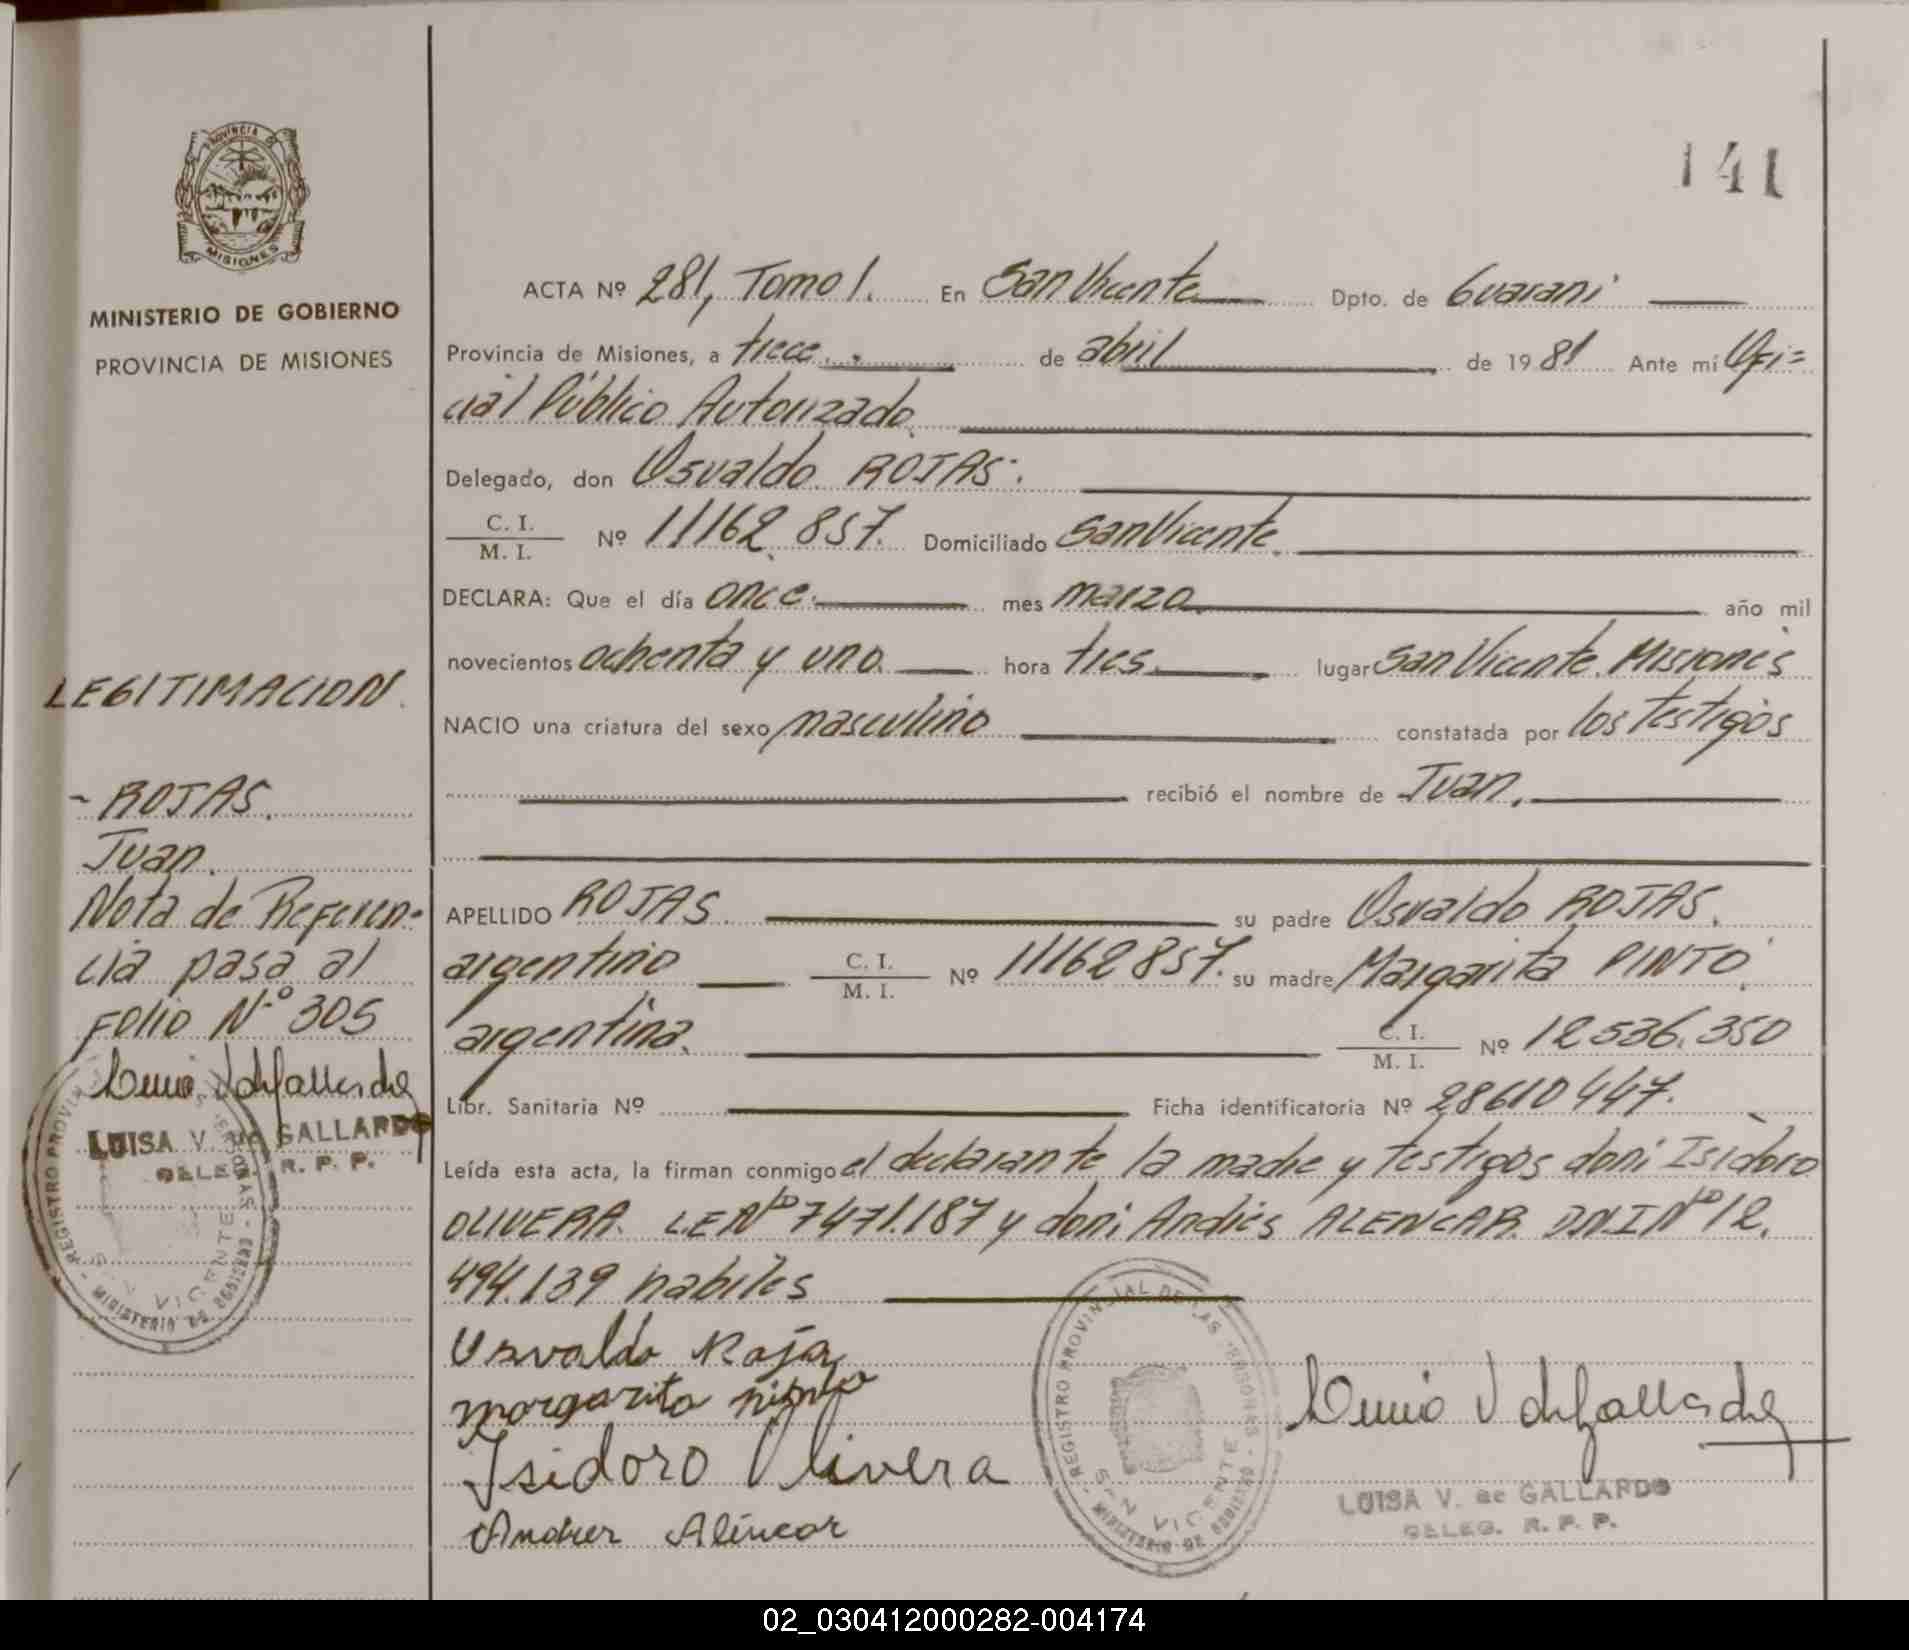 141
PROVINCIA DE
MISIONES
MINISTERIO DE GOBIERNO
PROVINCIA DE MISIONES
LEGITIMACION.
- ROJAS.
Juan.
Nota de Referen-
cia pasa al
FOLIO Nº 305
LUISA V. de GALLARDO
DELEG. R. P. P.
REGISTRO PROVINCIAL DE LAS PERSONAS - MINISTERIO DE GOBIERNO -
SAN VICENTE
ACTA Nº 281, Tomo 1. En San Vicente Dpto. de Guarani
Provincia de Misiones, a trece. de abril de 1981 Ante mí Ofi=
cial Público Autorizado.
Delegado, don Osvaldo ROJAS.
C. I.
M. I. Nº 11162.857. Domiciliado San Vicente.
DECLARA: Que el día once. mes marzo. año mil
novecientos ochenta y uno. hora tres. lugar San Vicente. Misiones
NACIO una criatura del sexo masculino constatada por los testigos
recibió el nombre de Juan.
APELLIDO ROJAS. su padre Osvaldo ROJAS.
argentino C. I.
M. I. Nº 11162857. su madre Margarita PINTO.
argentina. C. I.
M. I. Nº 12536.350
Libr. Sanitaria Nº Ficha identificatoria Nº 28610447.
Leída esta acta, la firman conmigo el declarante la madre y testigos don: Isidoro
OLIVERA. LE Nº 7471.187 y don: Andrés ALENCAR. DNI Nº 12.
494.139 habiles
Osvaldo Rojas
margarita pinto
Isidoro Olivera
Andres Alencar
REGISTRO PROVINCIAL DE LAS PERSONAS - MINISTERIO DE GOBIERNO -
SAN VICENTE
LUISA V. de GALLARDO
DELEG. R. P. P.
02_030412000282-004174